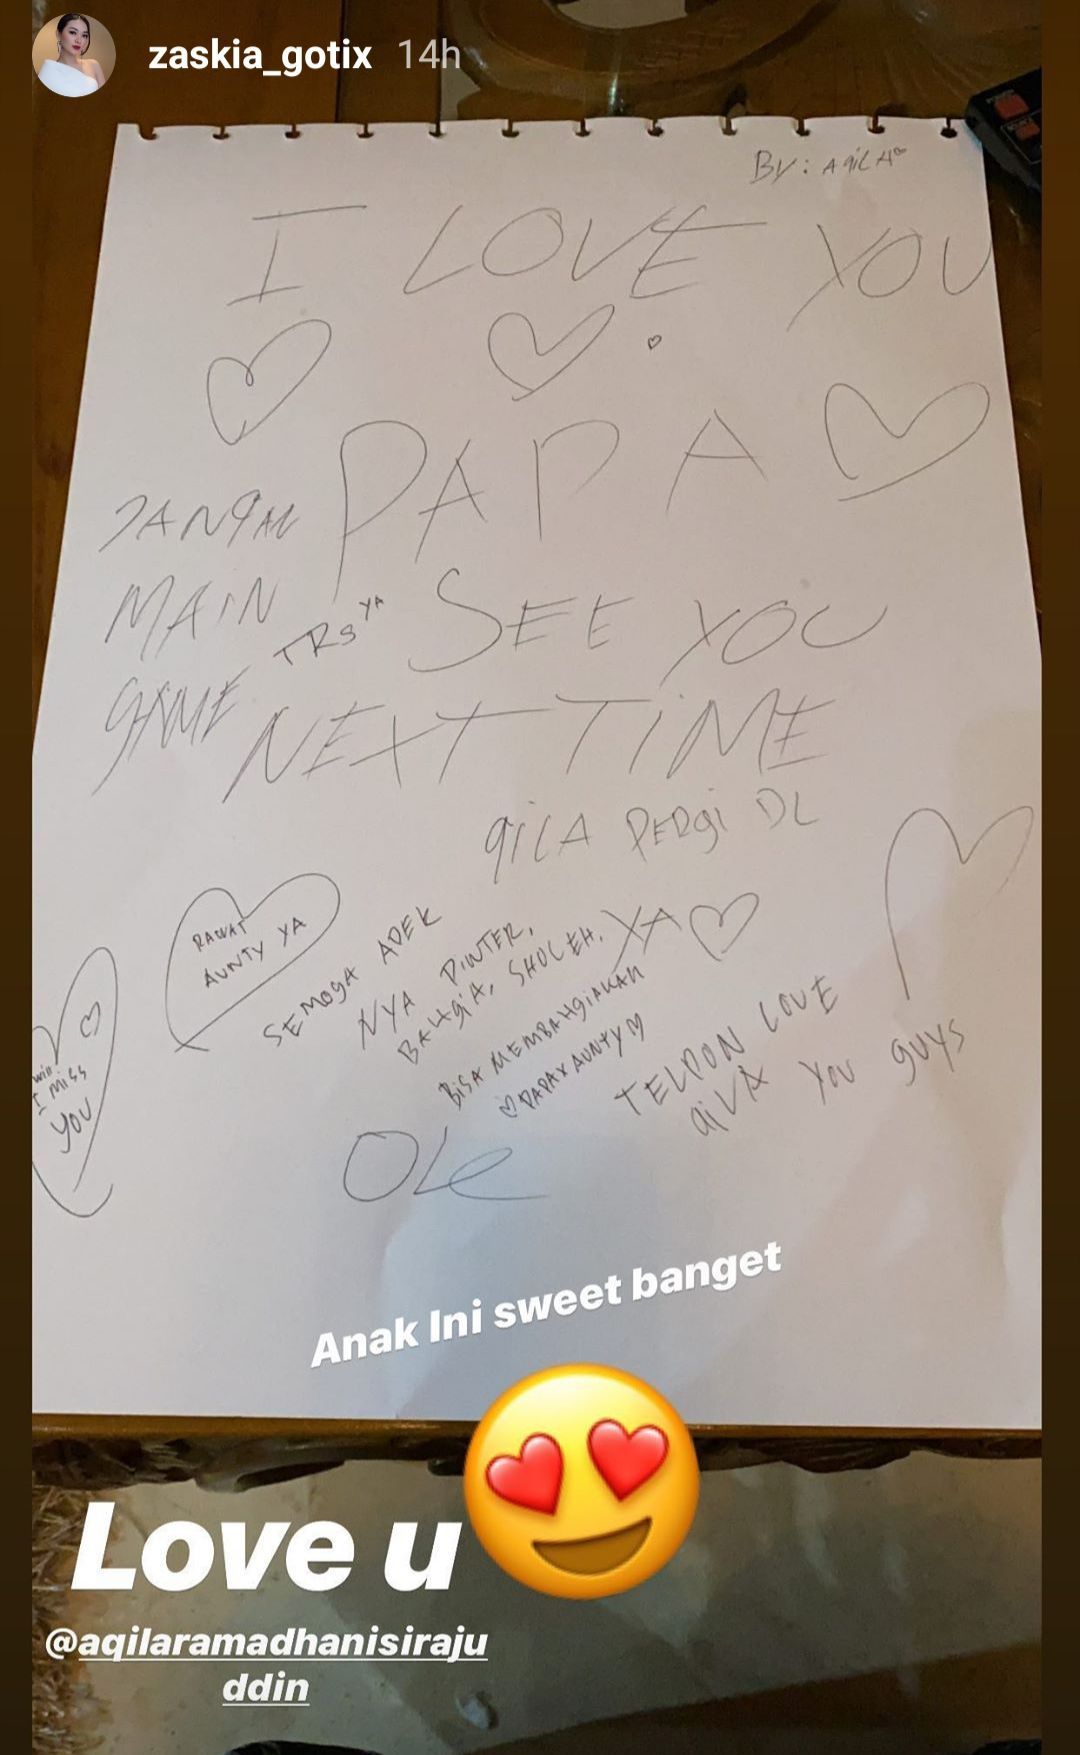 zaskia_gotix 14h
By: AqilA
I LOVE YOU
PAPA
JANGAN
MAIN
GAME TRS YA
SEE YOU
NEXT TIME
qilA PERgi DL
RAWAT
AUNTY YA
SEMOGA ADEK
NYA PINTER,
BAHgiA, SHOLEH. YA
BISA MEMBAHgiAKAN
PAPAX AUNTY
TELPON LOVE
qilA YOU guys
will
I miss
YOU
OLe
Anak Ini sweet banget
Love u
@aqilaramadhanisiraju
ddin